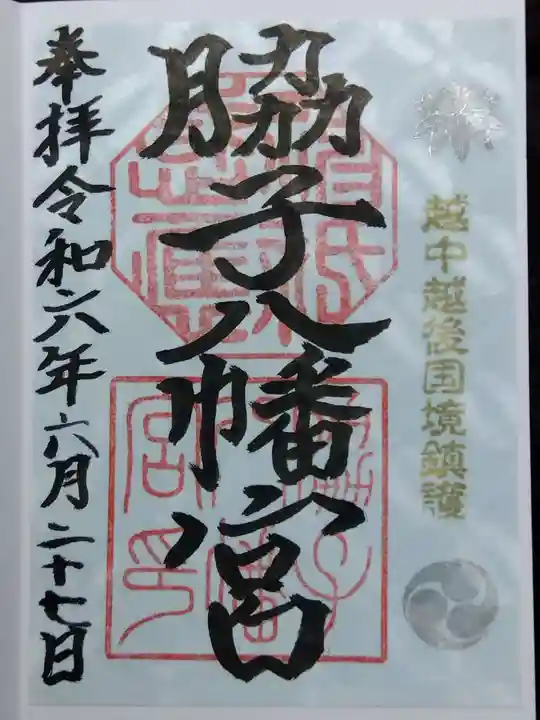 越中越後国境鎮護
脇子八幡宮
奉拝令和六年六月二十七日